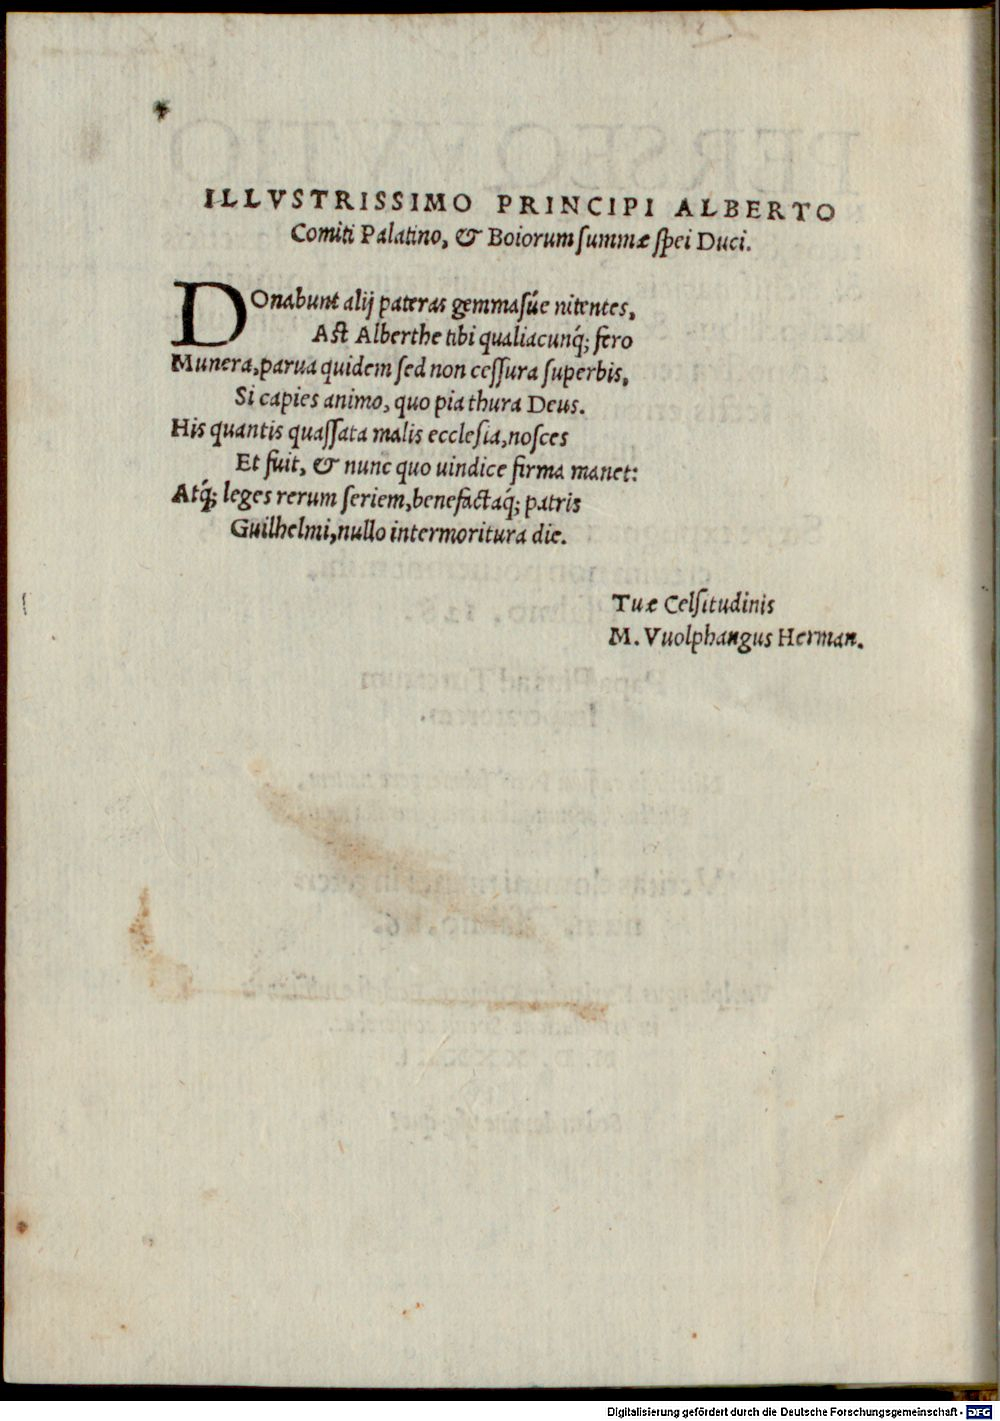 ILLVSTRISSIMO PRINCIPI ALBERTO
Comiti Palatino, & Boiorum ſummæ ſpei Duci.
DOnabunt alij pateras gemmaſúe nitentes,
Aſt Alberthe tibi qualiacunq́; fero
Munera, parua quidem ſed non ceſſura ſuperbis,
Si capies animo, quo pia thura Deus.
His quantis quaſſata malis eccleſia, noſces
Et fuit, & nunc quo uindice firma manet:
Atq́; leges rerum ſeriem, benefactaq́; patris
Guilhelmi, nullo intermoritura die.
Tuæ Celſitudinis
M. Vuolphangus Herman.
Digitalisierung gefördert durch die Deutsche Forschungsgemeinschaft - DFG